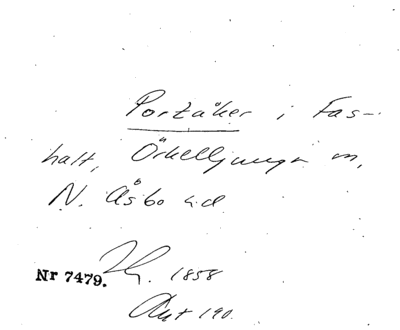 Portåker i Fas-
halt, Örkelljunga sn,
N. Åsbo hd
Nr 7479. 1858
Akt 190.